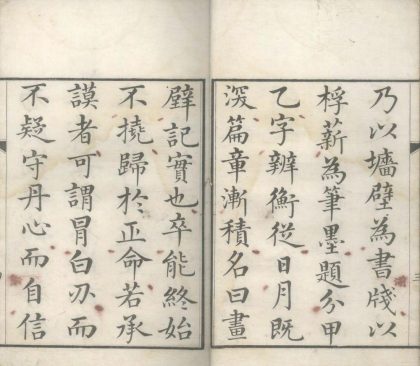 乃以墻壁為書牋以
桴薪為筆墨題分甲
乙字辨衡從日月既
深篇章漸積名曰畫
壁記實也卒能終始
不撓歸於正命若承
謨者可謂冒白刃而
不疑守丹心而自信